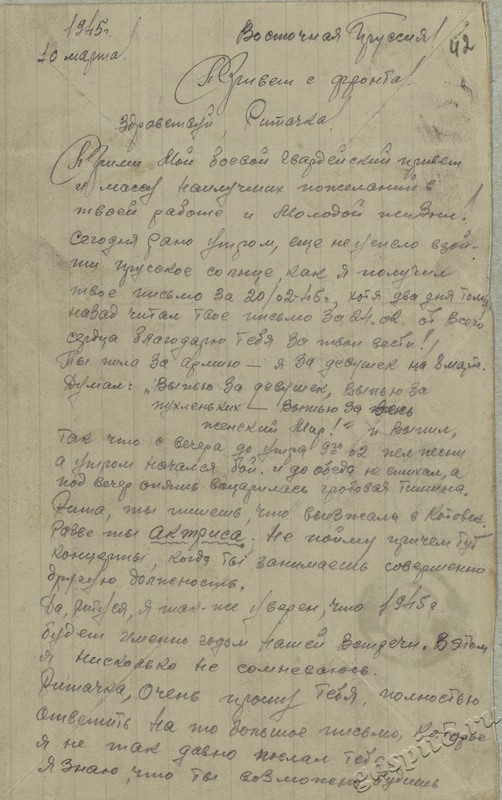 1945г. Восточная Пруссия! 42
10 марта!
Привет с фронта!
Здравствуй, Ритачка!
Прими мой боевой гвардейский привет
и массу наилучших пожеланий в
твоей работе и молодой жизни!
Сегодня рано утром, еще не успело взой-
ти прусское солнце, как я получил
твое письмо за 20/02-45г, хотя два дня тому
назад читал твое письмо за 24.02. от всего
сердца благодарю тебя за твои вести!
Ты пила за армию – я за девушек на 8 марта.
Думал: „Выпью за девушек, выпью за
пухленьких – выпью за весь
женский мир!" и выпил,
так что с вечера до утра пел песни
а утром начался бой. и до обеда не стихал, а
под вечер опять воцарилась гробовая тишина.
Рита, ты пишешь, что выезжала в Котовск.
Разве ты актриса. Не пойму причем тут
концерты, когда ты занимаешь совершенно
другую должность.
Да, Ритуся, я так-же уверен, что 1945г
будет именно годом нашей встречи. В этом
я нисколько не сомневаюсь.
Ритачка, очень прошу тебя, полностью
ответить на то большое письмо, которое
я не так давно послал тебе
я знаю, что ты возможно будешь
gaspito.ru